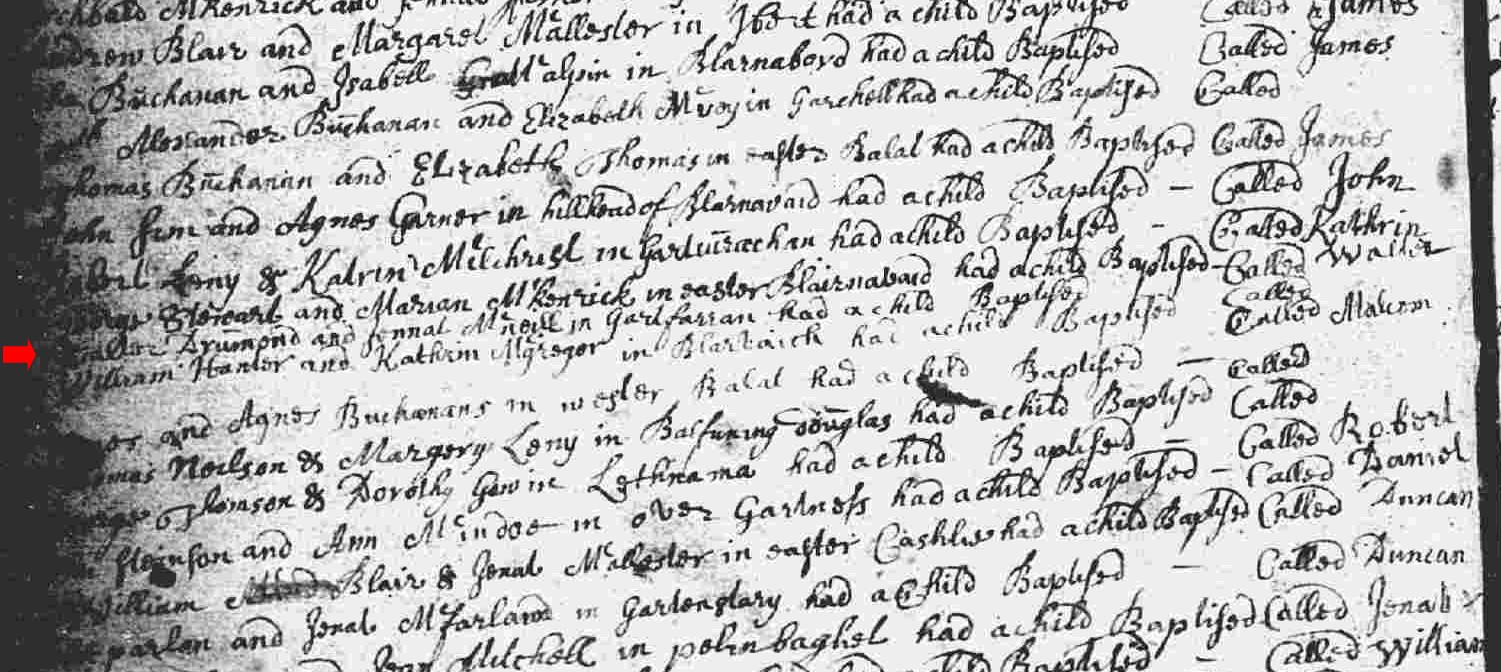 and
Blair and Margaret McAllester in Ibert had a child Baptised Called James
Buchanan and Isabell McAlpin in Blarnabord had a child Baptised Called James
Alexander Buchanan and Elizabeth McVoy in Garchell had a child Baptised Called
Thomas Buchanan and Elizabeth Thomas in easter Balat had a child Baptised Called James
John Sim and Agnes Garner in hillhead of Blarnavaid had a child Baptised – Called John
Leny & Katrin McIlchrist in Gartinrachan had a child Baptised – Called Kathrin
Stewart and Marian McKenrick in easter Blairnavaid had a child Baptised – Called Walter
Drummond and Jennat McNeill in Gartfarran had a child Baptised Called
William Hunter and Kathrin McGregor in Blarvaich had a child Baptised Called Malcom
and Agnes Buchanans in wester Balat had a child Baptised – Called
Neilson & Margery Leny in Balfuning douglas had a child Baptised Called
Thomson & Dorothy Gow in Lethnama had a child Baptised – Called Robert
Steinson and Ann McIndoe in over Gartness had a child Baptised – Called Daniel
William Blair & Jenat McAllester in easter Cashlie had a child Baptised Called Duncan
and Jenat McFarland in Gartenstary had a child Baptised – Called Duncan
Mitchell in had a child Baptised Called Jenat
Baptised – Called William